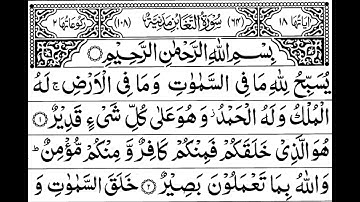 اٰيَاتُهَا ١٨ (٦٤) سُوْرَةُ التَّغَابُنِ مَدَنِيَّةٌ (١٠٨) رُكُوْعَاتُهَا ٢
بِسْمِ اللّٰهِ الرَّحْمٰنِ الرَّحِيْمِ
يُسَبِّحُ لِلّٰهِ مَا فِى السَّمٰوٰتِ وَمَا فِى الْاَرْضِ ۚ لَهُ
الْمُلْكُ وَلَهُ الْحَمْدُ ؗ وَهُوَ عَلٰى كُلِّ شَىْءٍ قَدِيْرٌ ۝۱
هُوَ الَّذِىْ خَلَقَكُمْ فَمِنْكُمْ كَافِرٌ وَّ مِنْكُمْ مُّؤْمِنٌ ؕ
وَاللّٰهُ بِمَا تَعْمَلُوْنَ بَصِيْرٌ ۝۲ خَلَقَ السَّمٰوٰتِ وَ